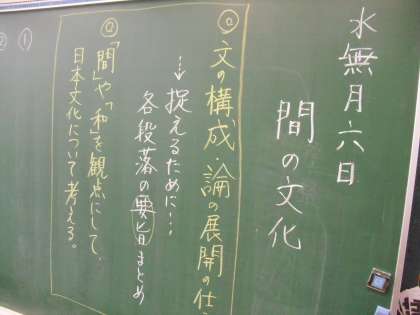 水無月六日
間の文化
◎文の構成・論の展開の仕
…→捉えるために…
各段落の要旨まとめ
◎「間」や「和」を観点にして、
日本文化について考える。
①
②